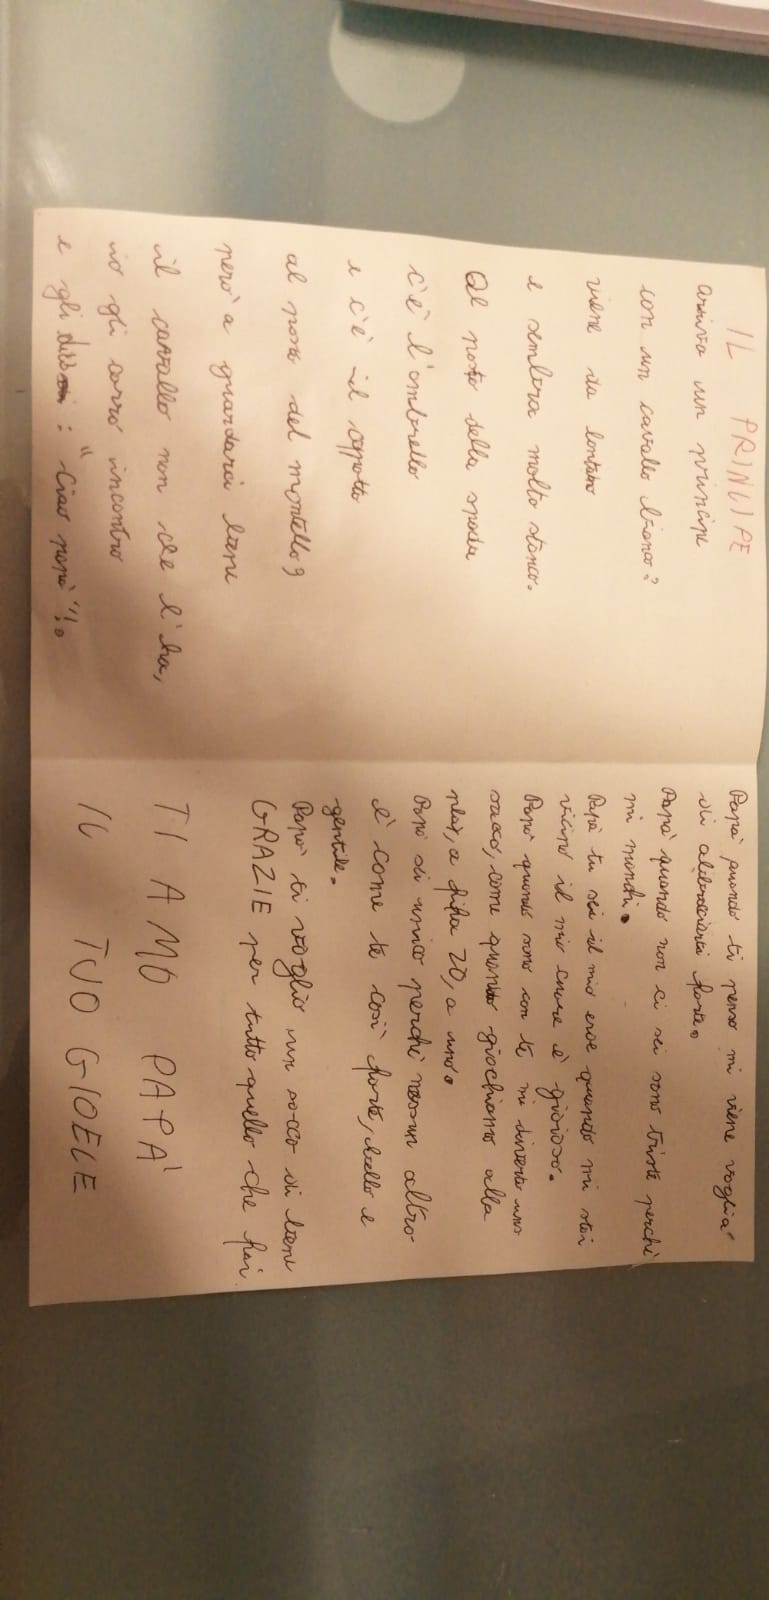 IL PRINCIPE
arriva un principe
con un cavallo bianco?
viene da lontano
e sembra molto stanco.
Al posto della spada
c'è l'ombrello
e c'è il cappotto
al posto del mantello,
però a guardarci bene
il cavallo non ce l'ha,
io gli corro incontro
e gli dico: "Ciao papà"!.
Papà quando ti penso mi viene voglia
di abbracciarti forte.
Papà quando non ci sei sono triste perchè
mi manchi.
Papà tu sei il mio eroe quando mi stai
vicino il mio cuore è gioioso.
Papà quando sono con te mi diverto uno
sacco, come quando giochiamo alla
play, a fifa 20, a uno.
Papà sei unico perchè nessun altro
è come te così forte, bello e
gentile.
Papà ti voglio un sacco di bene
GRAZIE per tutto quello che fai.
TI AMO PAPÀ
IL TUO GIOELE